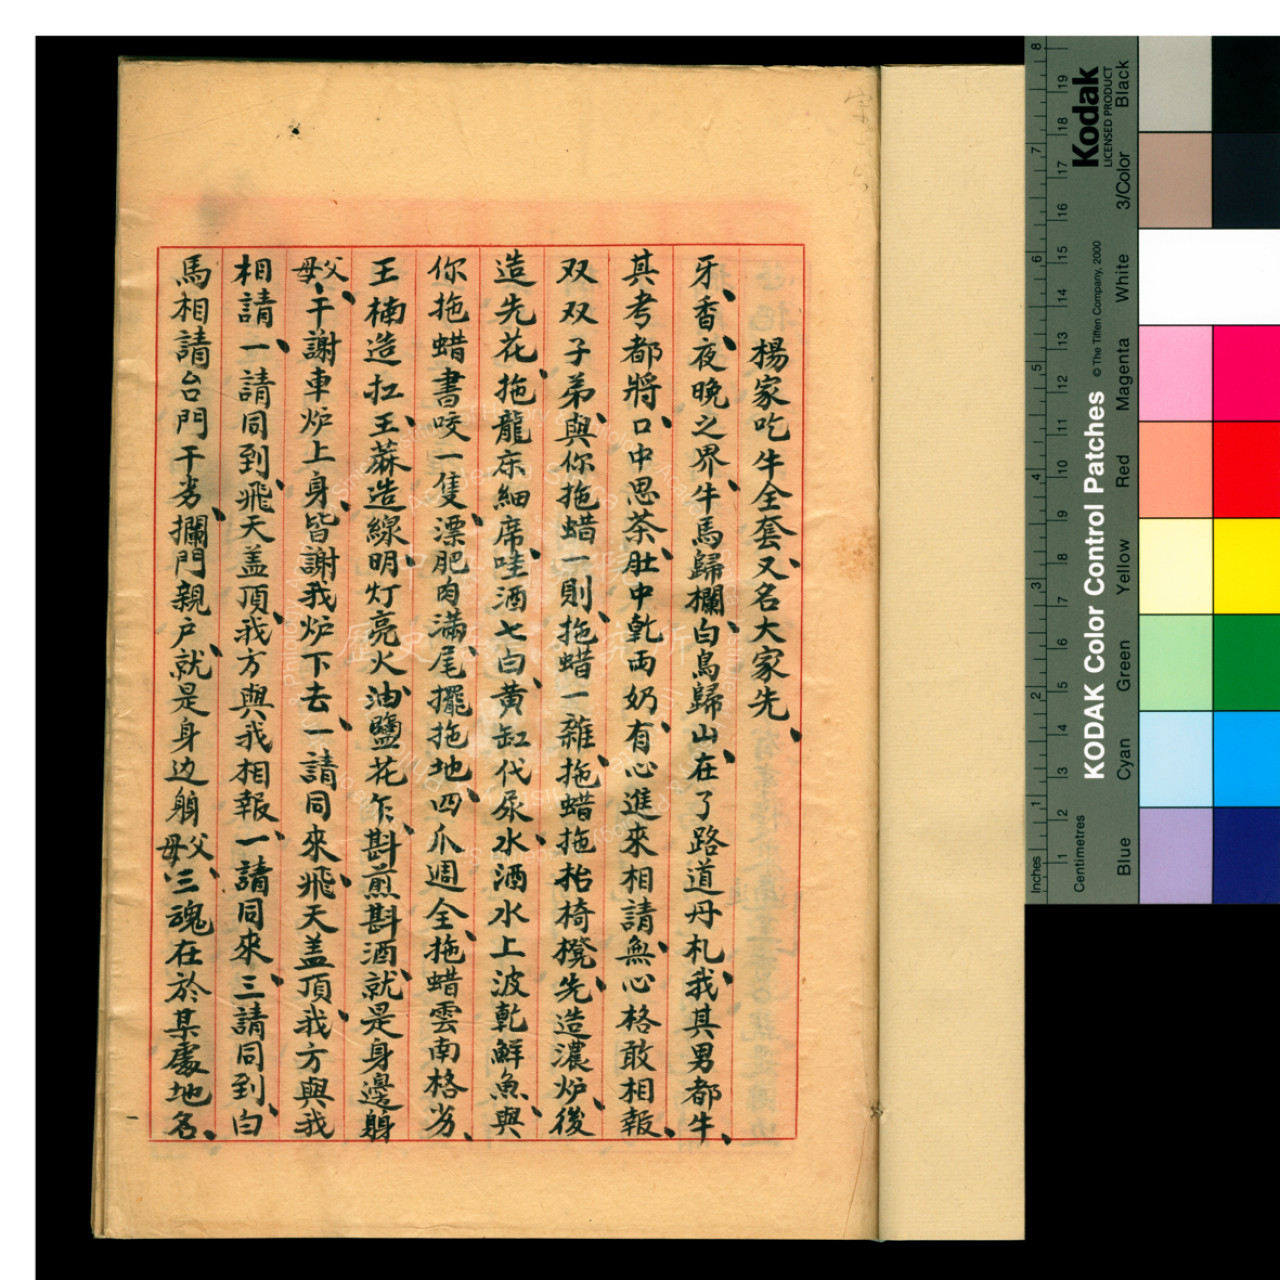 楊家吃牛全套、又名大家先、
牙、香、夜晚之界、牛馬歸欄、白鳥歸山、在了路道丹札、我其男都牛、
其考都將、口中思茶、肚中乹両奶、有心進來相請、無心格敢相報、
双双子弟、與你拖蜡一則、拖蜡一雜、拖蜡拖抬椅櫈、先造濃炉、後
造先花、拖龍床細席、哇酒七白、黄缸代尿水、酒水上波乾鮮魚、與
你拖蜡書咬一隻、漂肥肉滿尾、擺拖地、四爪週全、拖蜡雲南格劣、
王楠造扛、王蔴造線、明灯亮火、油鹽花乍、斟煎斟酒、就是身邊躹
父母、千謝車炉上身、皆謝我炉下去、一請同來、飛天盖頂、我方與我
相請、一請同到、飛天盖頂、我方與我相報、一請同來、三請同到、白
馬相請台門千劣、攔門親户、就是身边躹父母、三魂在於某處地名、
Kodak
LICENSED PRODUCT
KODAK Color Control Patches © The Tiffen Company, 2000
Black
3/Color
White
Magenta
Red
Yellow
Green
Cyan
Blue
Inches
Centimetres